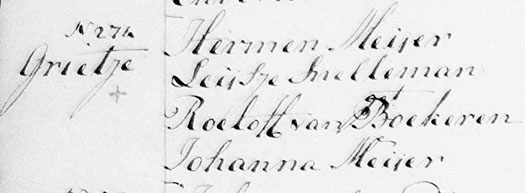 N 274
Grietje
Hermen Meijer
Leijtje Snelleman
Roeloff van Boekeren
Johanna Meijer